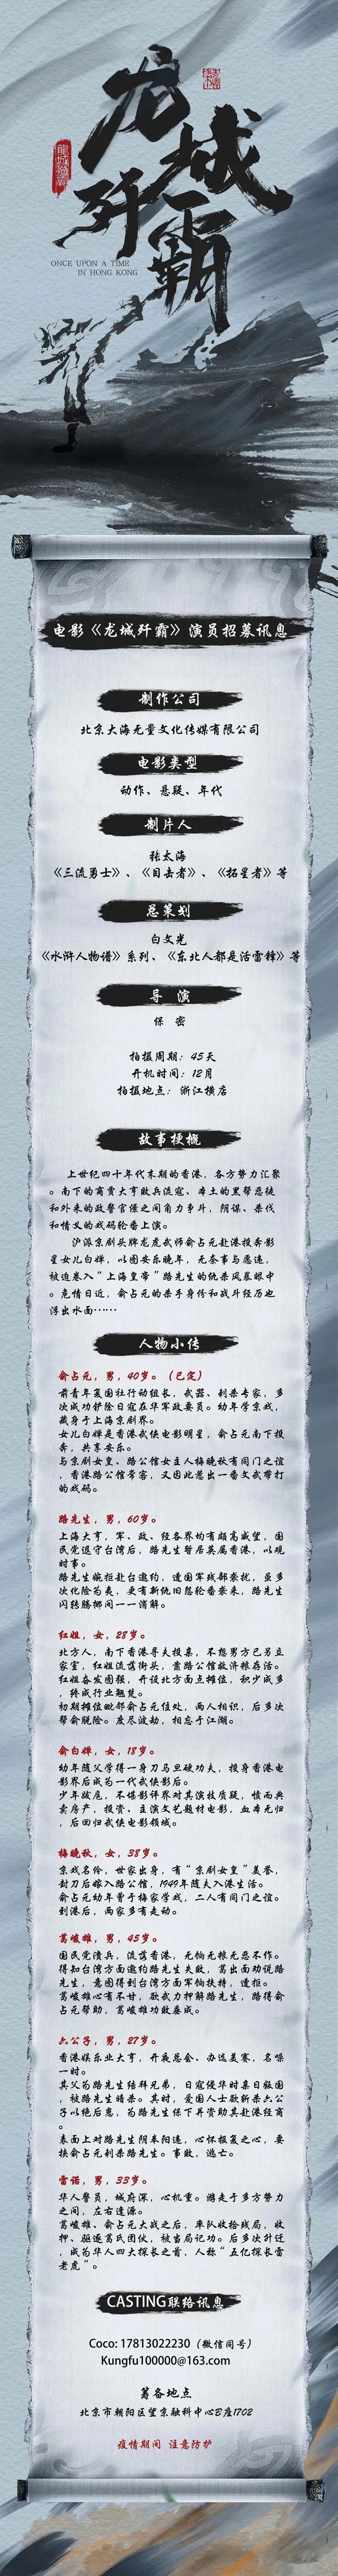 龙城
歼霸
龍城殲霸
ONCE UPON A TIME
IN HONG KONG
电影《龙城歼霸》演员招募讯息
制作公司
北京大海无量文化传媒有限公司
电影类型
动作、悬疑、年代
制片人
张太海
《三流勇士》、《目击者》、《拓星者》等
总策划
白文光
《水浒人物谱》系列、《东北人都是活雷锋》等
导 演
保 密
拍摄周期：45天
开机时间：12月
拍摄地点：浙江横店
故事梗概
上世纪四十年代末期的香港，各方势力汇聚
。南下的商贾大亨败兵流寇、本土的黑帮悪徒
和外来的政警官僚之间角力争斗，阴谋、杀伐
和情义的戏码轮番上演。
沪派京剧头牌龙虎武师俞占元赴港投奔影
星女儿白婵，以图安乐晚年，无奈事与愿违，
被迫卷入“上海皇帝”路先生的仇杀风暴眼中
。危情日近，俞占元的杀手身份和战斗经历也
浮出水面······
人物小传
俞占元，男，40岁。（已定）
前青年复国壮行动组长，武器、刺杀专家，多
次成功铲除日寇在华军政要员。幼年学京戏，
藏身于上海京剧界。
女儿白婵是香港武侠电影明星，俞占元南下投
奔，共享安乐。
与京剧女皇、路公馆女主人梅晚秋有同门之谊
，香港路公馆常客，又因此惹出一番文武带打
的戏码。
路先生，男，60岁。
上海大亨，军、政、经各界均有颇高威望，国
民党退守台湾后，路先生暂居英属香港，以观
时事。
路先生婉拒赴台邀约，遭国军残部袭扰，虽多
次化险为夷，更有新仇旧怨轮番袭来，路先生
闪转腾挪间一一消解。
红姐，女，28岁。
北方人，南下香港寻夫投亲，不想男方已另立
家室，红姐流落街头，靠路公馆救济粮存活。
红姐奋发图强，开设北方面点摊位，积少成多
，终成行业翘楚。
初期摊位毗邻俞占元住处，两人相识，后多次
帮俞脱险。废尽波劫，相忘于江湖。
俞白婵，女，18岁。
幼年随父学得一身刀马旦硬功夫，投身香港电
影界后成为一代武侠影后。
少年叛逆，不堪影评界对其演技质疑，愤而典
卖房产，投资、主演文艺题材电影，血本无归
，后回归武侠电影领域。
梅晚秋，女，38岁。
京戏名伶，世家出身，有“京剧女皇”美誉，
封刀后嫁入路公馆，1949年随夫入港生活。
俞占元幼年曾于梅家学戏，二人有同门之谊。
到港后，两家多有走动。
葛峻雄，男，45岁。
国民党溃兵，流落香港，无饷无粮无恶不作。
得知台湾方面邀约路先生失败，葛出面劝说路
先生，意图得到台湾方面军饷扶持，遭拒。
葛峻雄心有不甘，欲武力押解路先生，路得俞
占元帮助，葛峻雄功败垂成。
六公子，男，27岁。
香港娱乐业大亨，开夜总会、办选美赛，名噪
一时。
其父为路先生结拜兄弟，日寇侵华时亲日叛国
，被路先生暗杀。其时，爱国人士欲斩杀六公
子以绝后患，为路先生保下并资助其赴港经商
。
表面上对路先生阴奉阳违，心怀报复之心，要
挟俞占元刺杀路先生。事败，逃亡。
雷诺，男，33岁。
华人警员，城府深，心机重。游走于多方势力
之间，左右逢源。
葛峻雄、俞占元大战之后，率队收拾残局，收
押、驱逐葛氏团伙，被当局记功。后多次升迁
，成为华人四大探长之首，人称“五亿探长雷
老虎”。
CASTING联络讯息
Coco: 17813022230（微信同号）
Kungfu100000@163.com
筹备地点
北京市朝阳区望京融科中心B座1702
疫情期间 注意防护